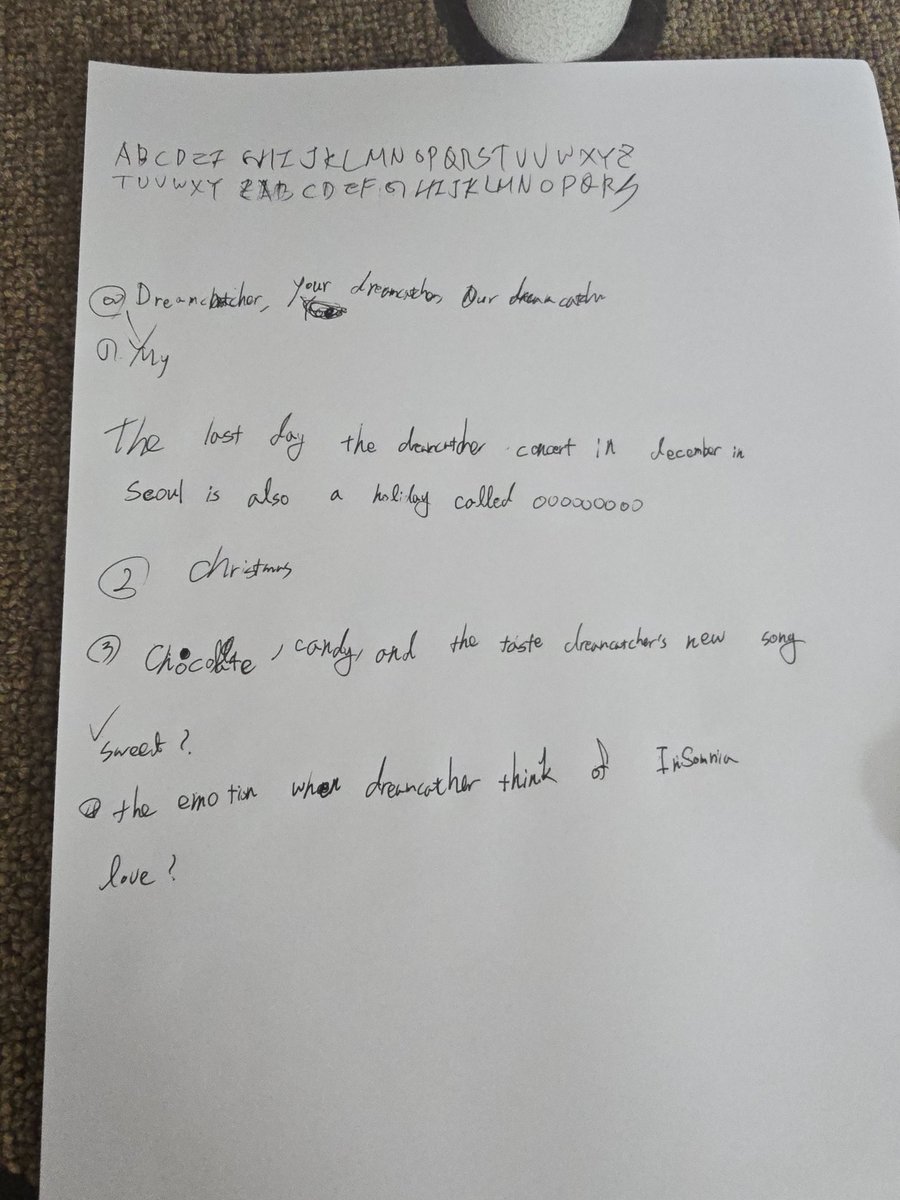 ABCDEF GHIJKLMN OPQRSTUVWXYZ
TUVWXY ZAB CDEFGHIJKLMNOPQRS
ⓐ Dreamcatcher, Your dreamcatcher, Our dreamcatcher
①. My
The last day the dreamcatcher concert in december in
Seoul is also a holiday called ○○○○○○○○○
② christmas
③ Chocolate, candy, and the taste dreamcatcher's new song
sweet?
the emotion when dreamcather think of InSomnia
love?